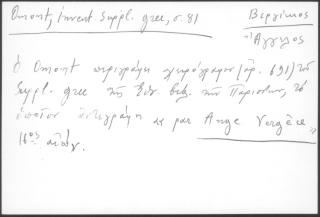 Omont, Invent Suppl. grec, σ. 81
Βεργίκιος
Ἄγγελος
ὁ Omont περιγράφει χειρόγραφον (ἀρ. 691) τοῦ
Suppl. grec τῆς Ἐθν. βιβ. τῶν Παρισίων, τὸ
ὁποῖον ἀντιγράφη par Ange Vergèce
16ος αἰών.